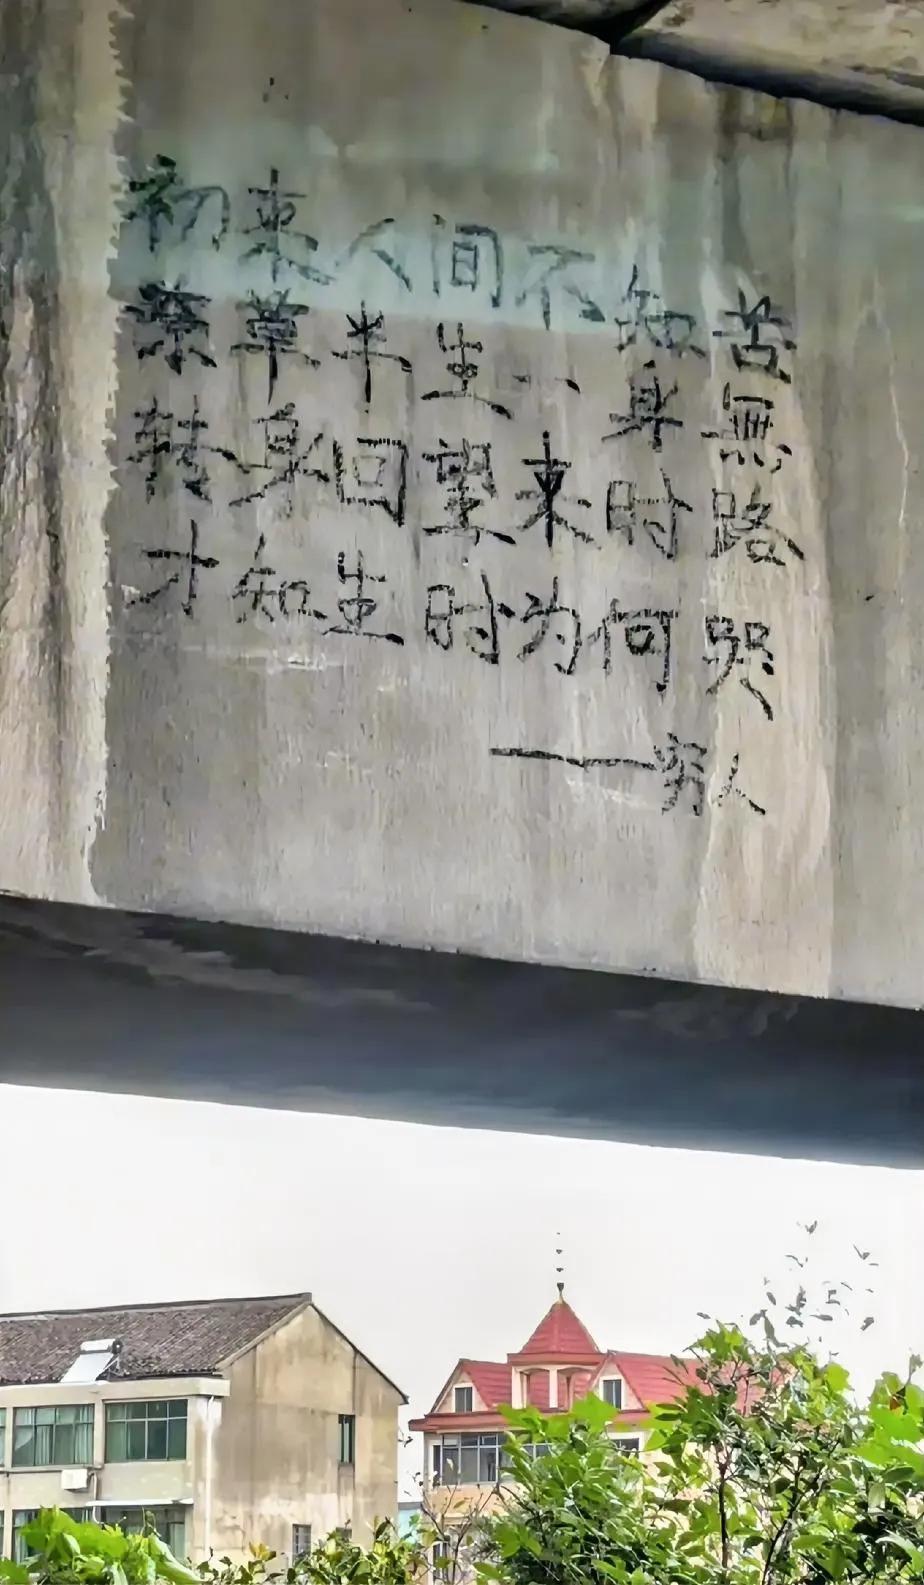 初来人间不知苦
潦草半生一身無
转身回望来时路
才知生时为何哭
——穷人